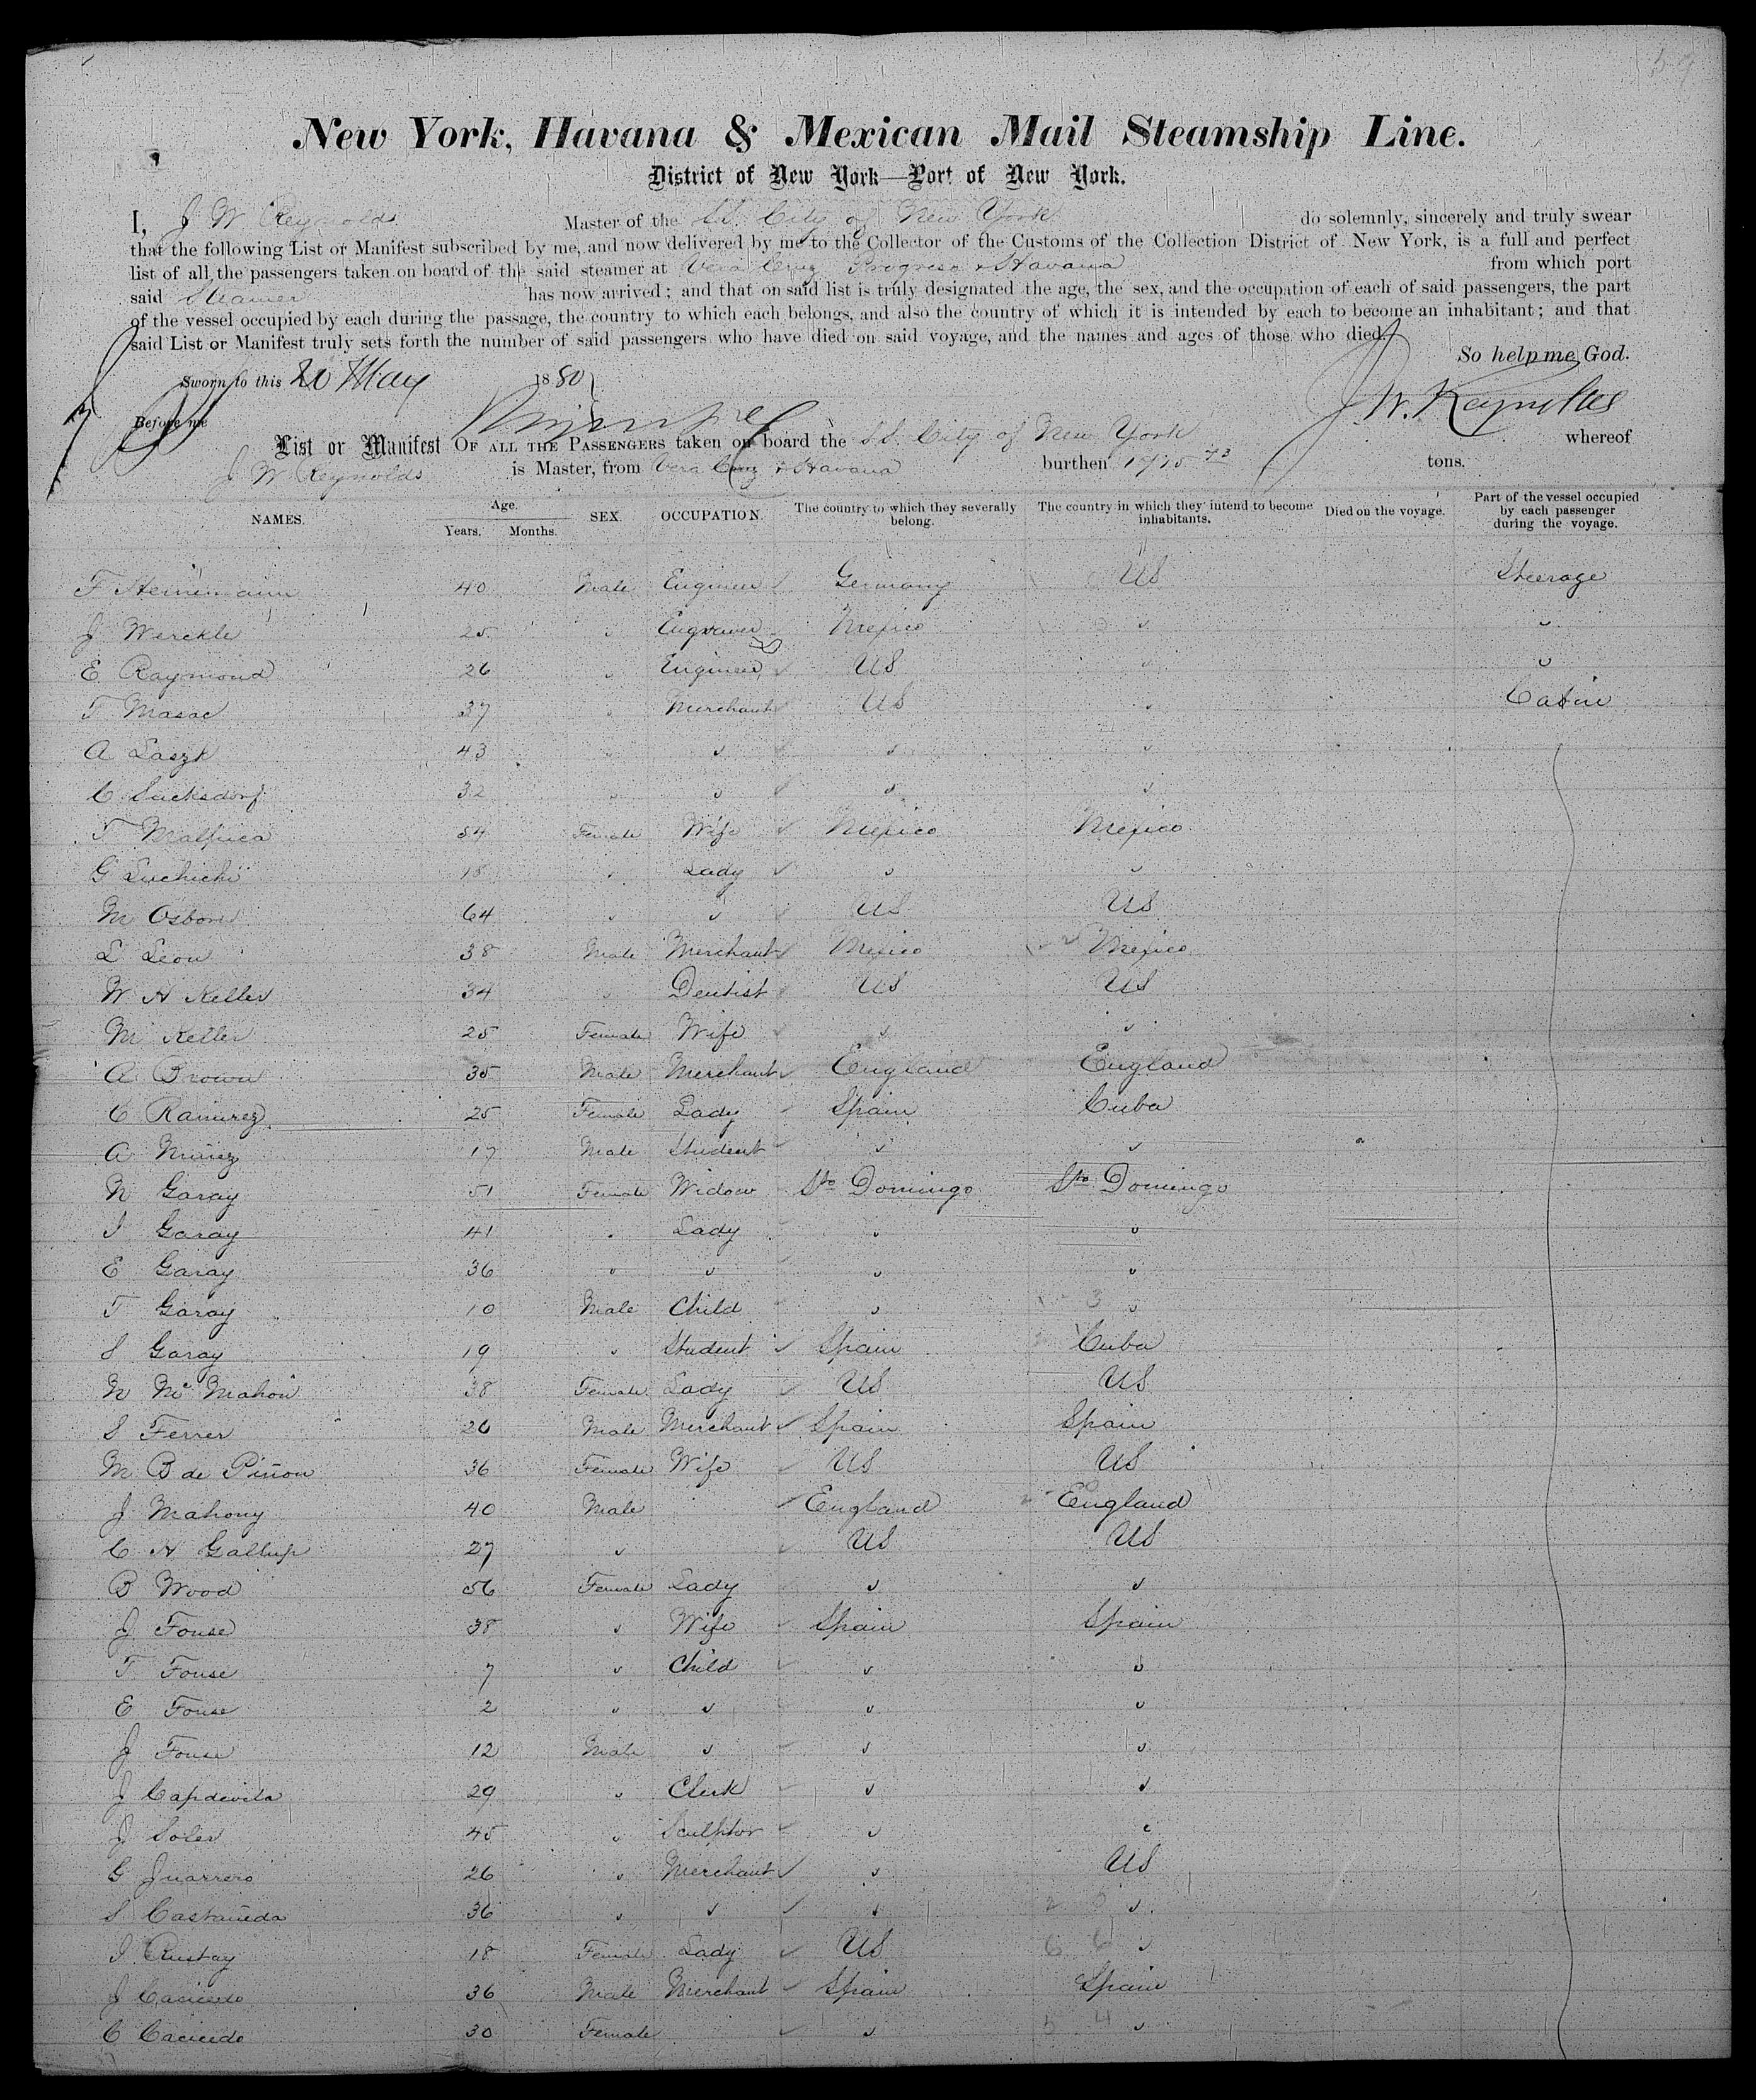 59
New York, Havana & Mexican Mail Steamship Line.
District of New York—Port of New York.
I, J W Reynolds Master of the S.S. City of New York do solemnly, sincerely and truly swear
that the following List or Manifest subscribed by me, and now delivered by me to the Collector of the Customs of the Collection District of New York, is a full and perfect
list of all the passengers taken on board of the said steamer at Vera Cruz Progreso & Havana from which port
said Steamer has now arrived; and that on said list is truly designated the age, the sex, and the occupation of each of said passengers, the part
of the vessel occupied by each during the passage, the country to which each belongs, and also the country of which it is intended by each to become an inhabitant; and that
said List or Manifest truly sets forth the number of said passengers who have died on said voyage, and the names and ages of those who died.
So help me God.
Sworn to this 20 May 1880
J. W. Reynolds
Before me
List or Manifest OF ALL THE PASSENGERS taken on board the S.S. City of New York whereof
J W Reynolds is Master, from Vera Cruz & Havana burthen 1715 73 tons.
NAMES. Age. Years. Months. SEX. OCCUPATION. The country to which they severally belong. The country in which they intend to become inhabitants. Died on the voyage. Part of the vessel occupied by each passenger during the voyage.
F Heinemann 40 Male Engineer Germany US Steerage
J Werckle 25 " Engraver Mexico " "
E Raymond 26 " Engineer US " "
T Masac 37 " Merchant US " Cabin
A Laszk 43 " " " "
C Sucksdorf 32 " " " "
T Malpica 54 Female Wife Mexico Mexico
G Luchichi 18 " Lady " "
M Osborn 64 " " US US
L Leon 38 Male Merchant Mexico Mexico
W H Keller 34 " Dentist US US
M Keller 25 Female Wife " "
A Brown 35 Male Merchant England England
C Ramirez 25 Female Lady Spain Cuba
A Nuñez 17 Male Student " "
N Garay 51 Female Widow Sto Domingo Sto Domingo
I Garay 41 " Lady " "
E Garay 36 " " " "
T Garay 10 Male Child " "
S Garay 19 " Student Spain Cuba
N Mc Mahon 38 Female Lady US US
S Ferrer 26 Male Merchant Spain Spain
M B de Piñon 36 Female Wife US US
J Mahony 40 Male England England
C H Gallup 27 " US US
B Wood 56 Female Lady " "
J Fonse 38 " Wife Spain Spain
T Fonse 7 " Child " "
E Fonse 2 " " " "
J Fonse 12 Male " " "
J Capdevila 29 " Clerk " "
J Soler 45 " Sculptor " "
G Juarrero 26 " Merchant " US
S Castañeda 36 " " " "
I Rustay 18 Female Lady US "
J Cacicedo 36 Male Merchant Spain Spain
C Cacicedo 30 Female " "